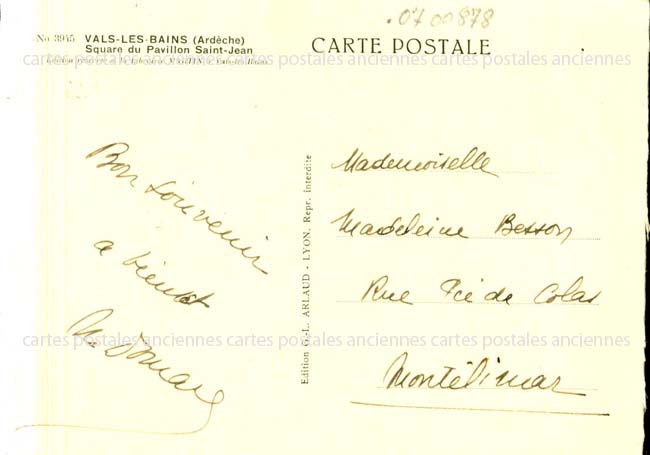 .0700878
No 3945 VALS-LES-BAINS (Ardèche)
Square du Pavillon Saint-Jean
CARTE POSTALE
cartes postales anciennes cartes postales anciennes cartes postales anciennes
Bon souvenir
a bientot
Edition G.-L. ARLAUD - LYON. Repr. interdite
Mademoiselle
Madeleine Besson
Rue de Colas
Montélimar
cartes postales anciennes cartes postales anciennes cartes postales anciennes